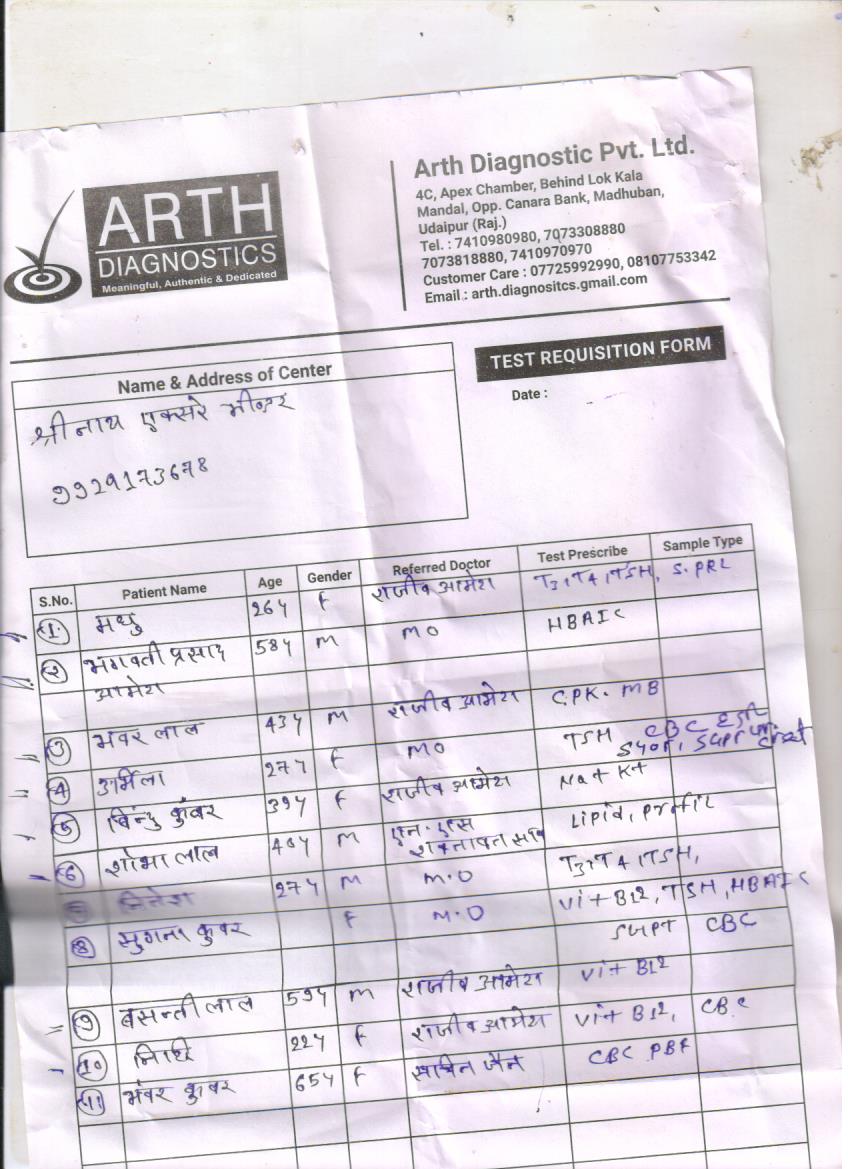 ARTH
DIAGNOSTICS
Meaningful, Authentic & Dedicated
Arth Diagnostic Pvt. Ltd.
4C, Apex Chamber, Behind Lok Kala
Mandal, Opp. Canara Bank, Madhuban,
Udaipur (Raj.)
Tel. : 7410980980, 7073308880
7073818880, 7410970970
Customer Care : 07725992990, 08107753342
Email : arth.diagnositcs.gmail.com
TEST REQUISITION FORM
Date :
Name & Address of Center
श्रीनाथ एक्सरे भीण्डर
9929173678
S.No. Patient Name Age Gender Referred Doctor Test Prescribe Sample Type
1. मधु 26y F राजीव आमेरा T3, T4, TSH, S. PRL
2 भगवती प्रसाद 58y M MO HBA1C
आमेरा
3 भंवर लाल 43y M राजीव आमेरा C.PK. MB
4 उर्मिला 27y F MO TSH CBC ESR
5 बिन्दु कुंवर 39y F राजीव आमेरा Na+ K+
6 शोभा लाल 40y M एन. एस शक्तावत Lipid, Profil
27y M M.O T3, T4, TSH,
8 सुगना कुंवर F M.O Vit B12, TSH, HBA1C
SGPT CBC
9 बसन्ती लाल 59y M राजीव आमेरा Vit B12
10 निधि 22y F राजीव आमेरा Vit B12, CBC
11 भंवर कुंवर 65y F सचिन जैन CBC PBF